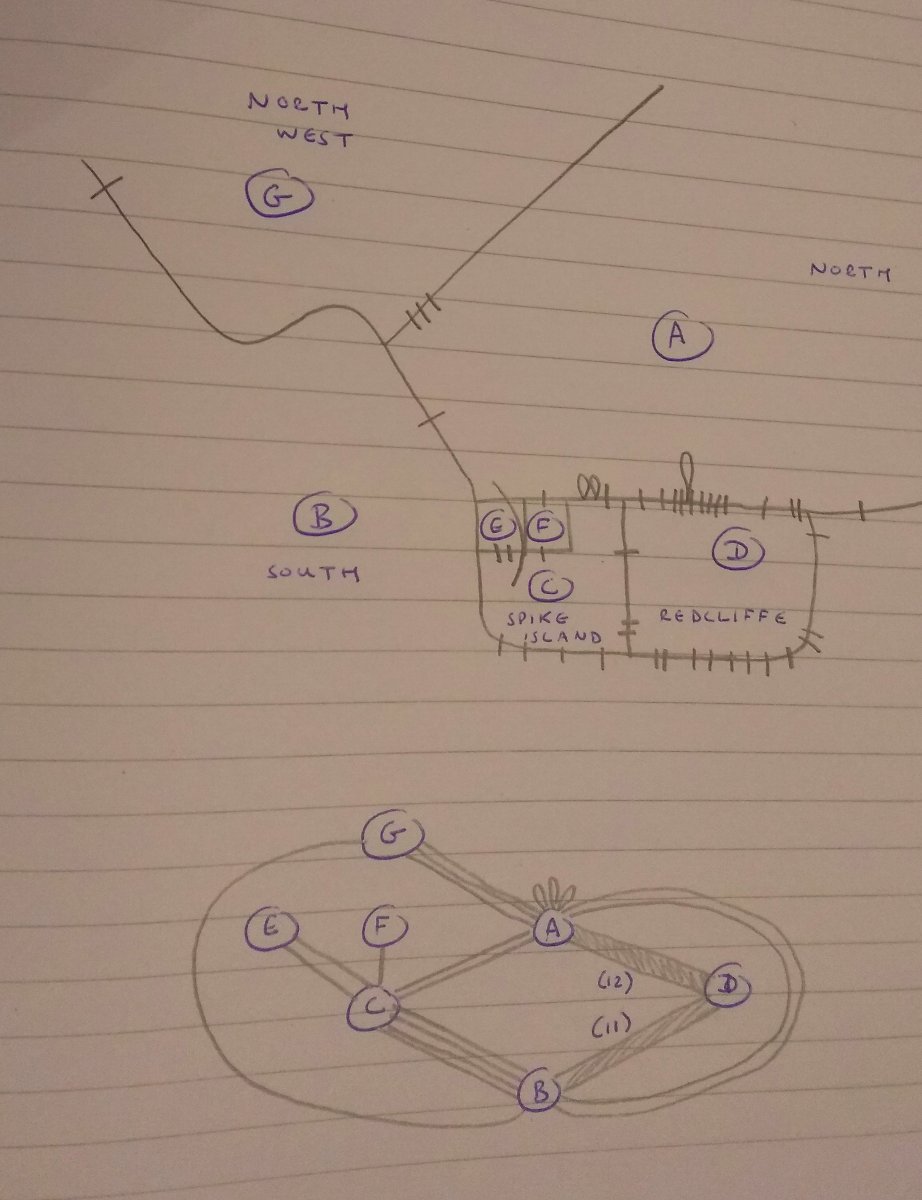 NORTH
WEST
G
NORTH
A
B
SOUTH
E F
D
C
SPIKE
ISLAND
REDCLIFFE
G
E F A
(12)
D
C
(11)
B